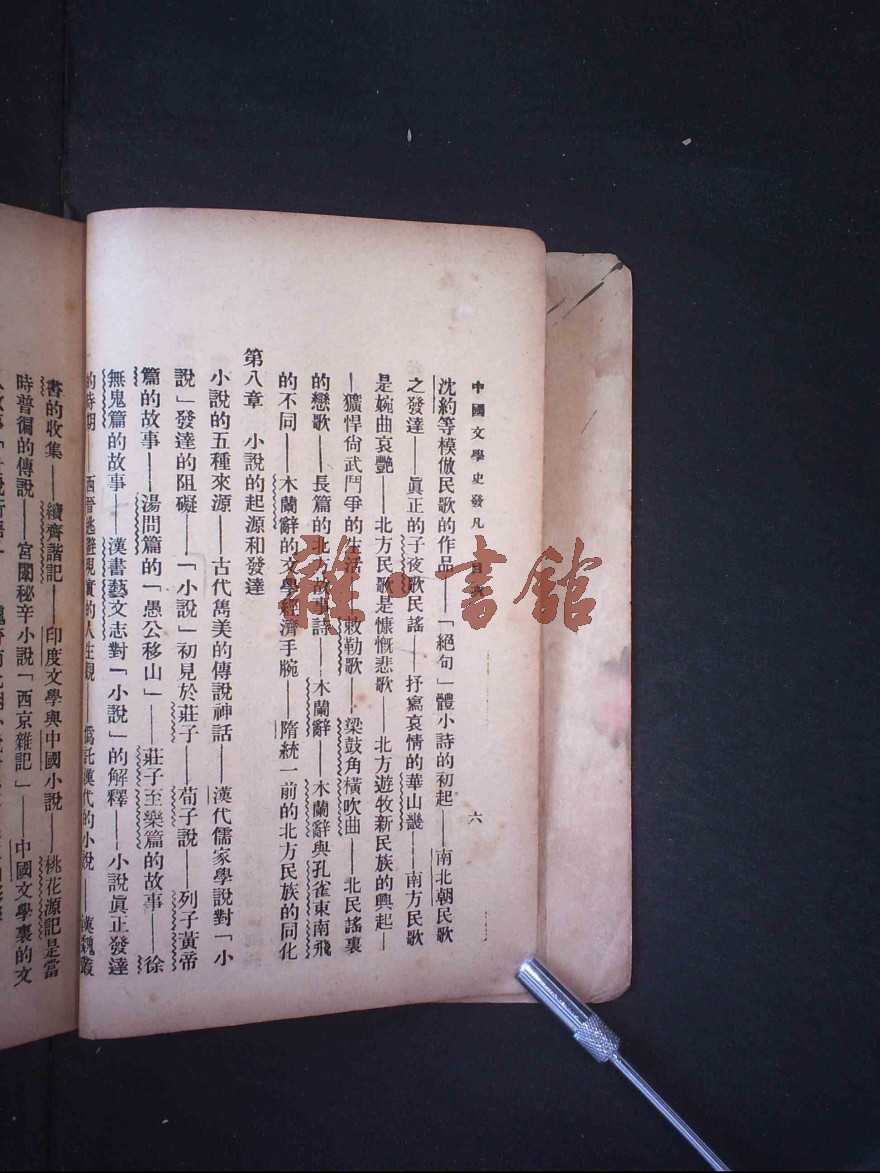 中國文學史發凡 目次 六
沈約等模倣民歌的作品——「絕句」體小詩的初起——南北朝民歌
之發達——眞正的子夜歌民謠——抒寫哀情的華山畿——南方民歌
是婉曲哀艷——北方民歌是慷慨悲歌——北方遊牧新民族的興起—
—獷悍尙武鬥爭的生活——敕勒歌——梁鼓角橫吹曲——北民謠裏
的戀歌——長篇的北方故事詩——木蘭辭——木蘭辭與孔雀東南飛
的不同——木蘭辭的文學經濟手腕——隋統一前的北方民族的同化
第八章 小說的起源和發達
小說的五種來源——古代雋美的傳說神話——漢代儒家學說對「小
說」發達的阻礙——「小說」初見於莊子——荀子說——列子黃帝
篇的故事——湯問篇的「愚公移山」——莊子至樂篇的故事——徐
無鬼篇的故事——漢書藝文志對「小說」的解釋——小說眞正發達
的時期——西晉逃避現實的人生觀——僞託漢代的小說——漢魏叢
書的收集——續齊諧記——印度文學與中國小說——桃花源記是當
時普徧的傳說——宮闈秘辛小說「西京雜記」——中國文學裏的文
雜·書館